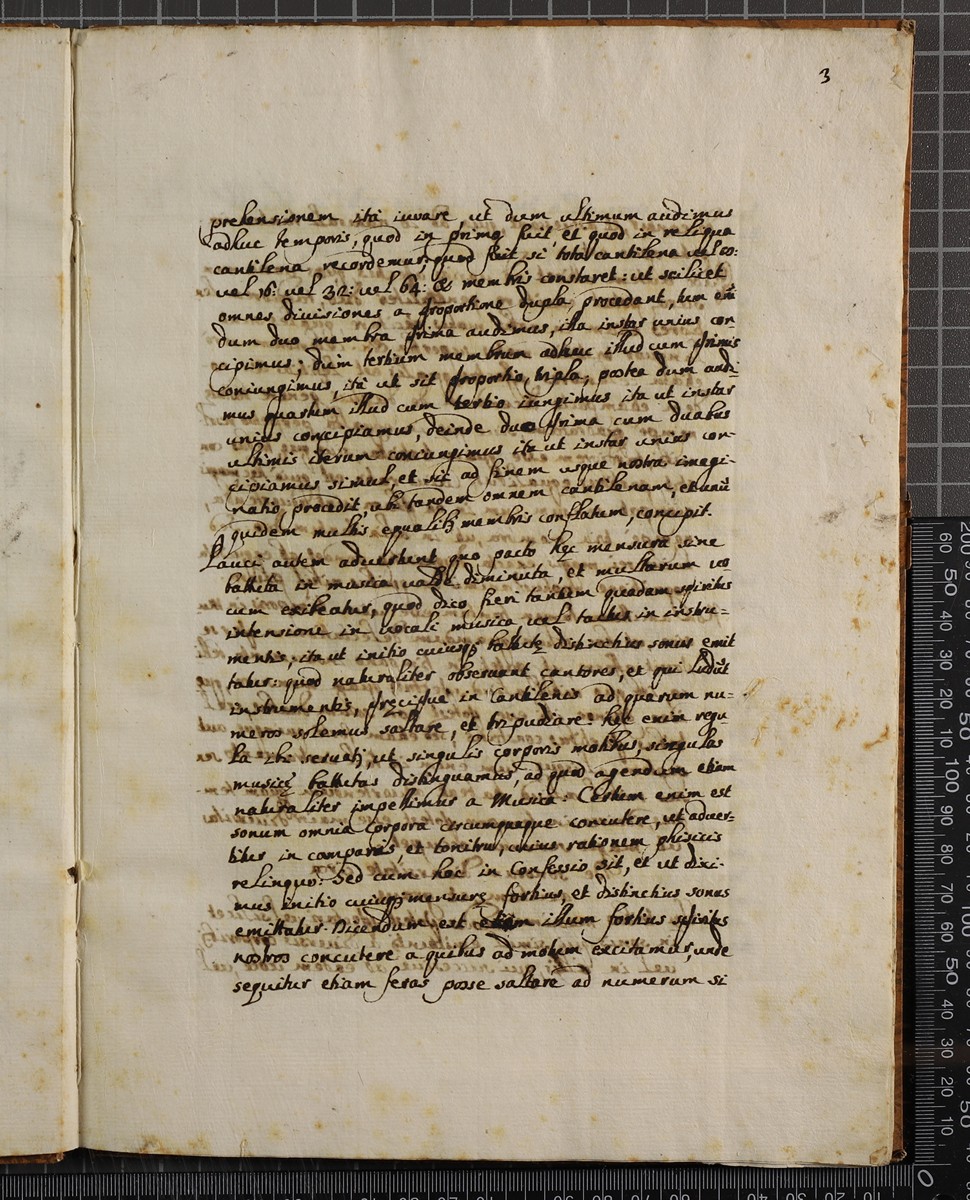 3
prehensionem ità iuvare, ut dum ultimum audimus
adhuc temporis, quod in primo fuit, et quod in reliqua
cantilena recordemur; quod fuit si tota cantilena vel 8:
vel 16: vel 32: vel 64: & membris constaret: ut scilicet
omnes divisiones a proportione dupla procedant, tum eni
dum duo membra prima audimus, illa instar unius con-
cipimus; dum tertium membrum adhuc illud cum primis
coniungimus, ità ut sit proportio tripla, postea dum audi-
mus quartum illud cum tertio iungimus ita ut instar
unius concipiamus, deinde duo prima cum duabus
ultimis iterum coniungimus ita ut instar unius con-
cipiamus simul, et sic ad finem usque nostra imagi-
natio procedit, ubi tandem omnem cantilenam, et unū
quidem multis equalib9 membris conflatum, concipit.
Pauci autem advertunt quo pacto hęc mensura sine
battuta in musica valde diminuta, et multarum vo
cum exibeatur, quod dico fieri tantum quadam spiritus
intensione in vocali musica, vel tactus in instru-
mentis, ita ut initio cuiusq; battutę distinctius sonus emit
tatur: quod naturaliter observant cantores, et qui ludūt
instrumentis, pręcipue in Cantilenis ad quarum nu-
meros solemus saltare, et tripudiare: hęc enim regu-
la ibi servatr, ut singulis corporis motibus, singulas
musicę battutas distinguamus, ad quod agendum etiam
naturaliter impellimur a Musica: Certum enim est
sonum omnia corpora circumquaque concutere, ut adver-
titur in campanis, et tonitru, cuius rationem phisicis
relinquo. Sed cum hoc in Confesso sit, et ut dixi-
mus initio cuiusq; mensurę fortius, et distinctius sonus
emittatur. Dicendum est etiam illum fortius spiritus
nostros concutere a quibus ad motum excitamur, unde
sequitur etiam feras posse saltare ad numerum si